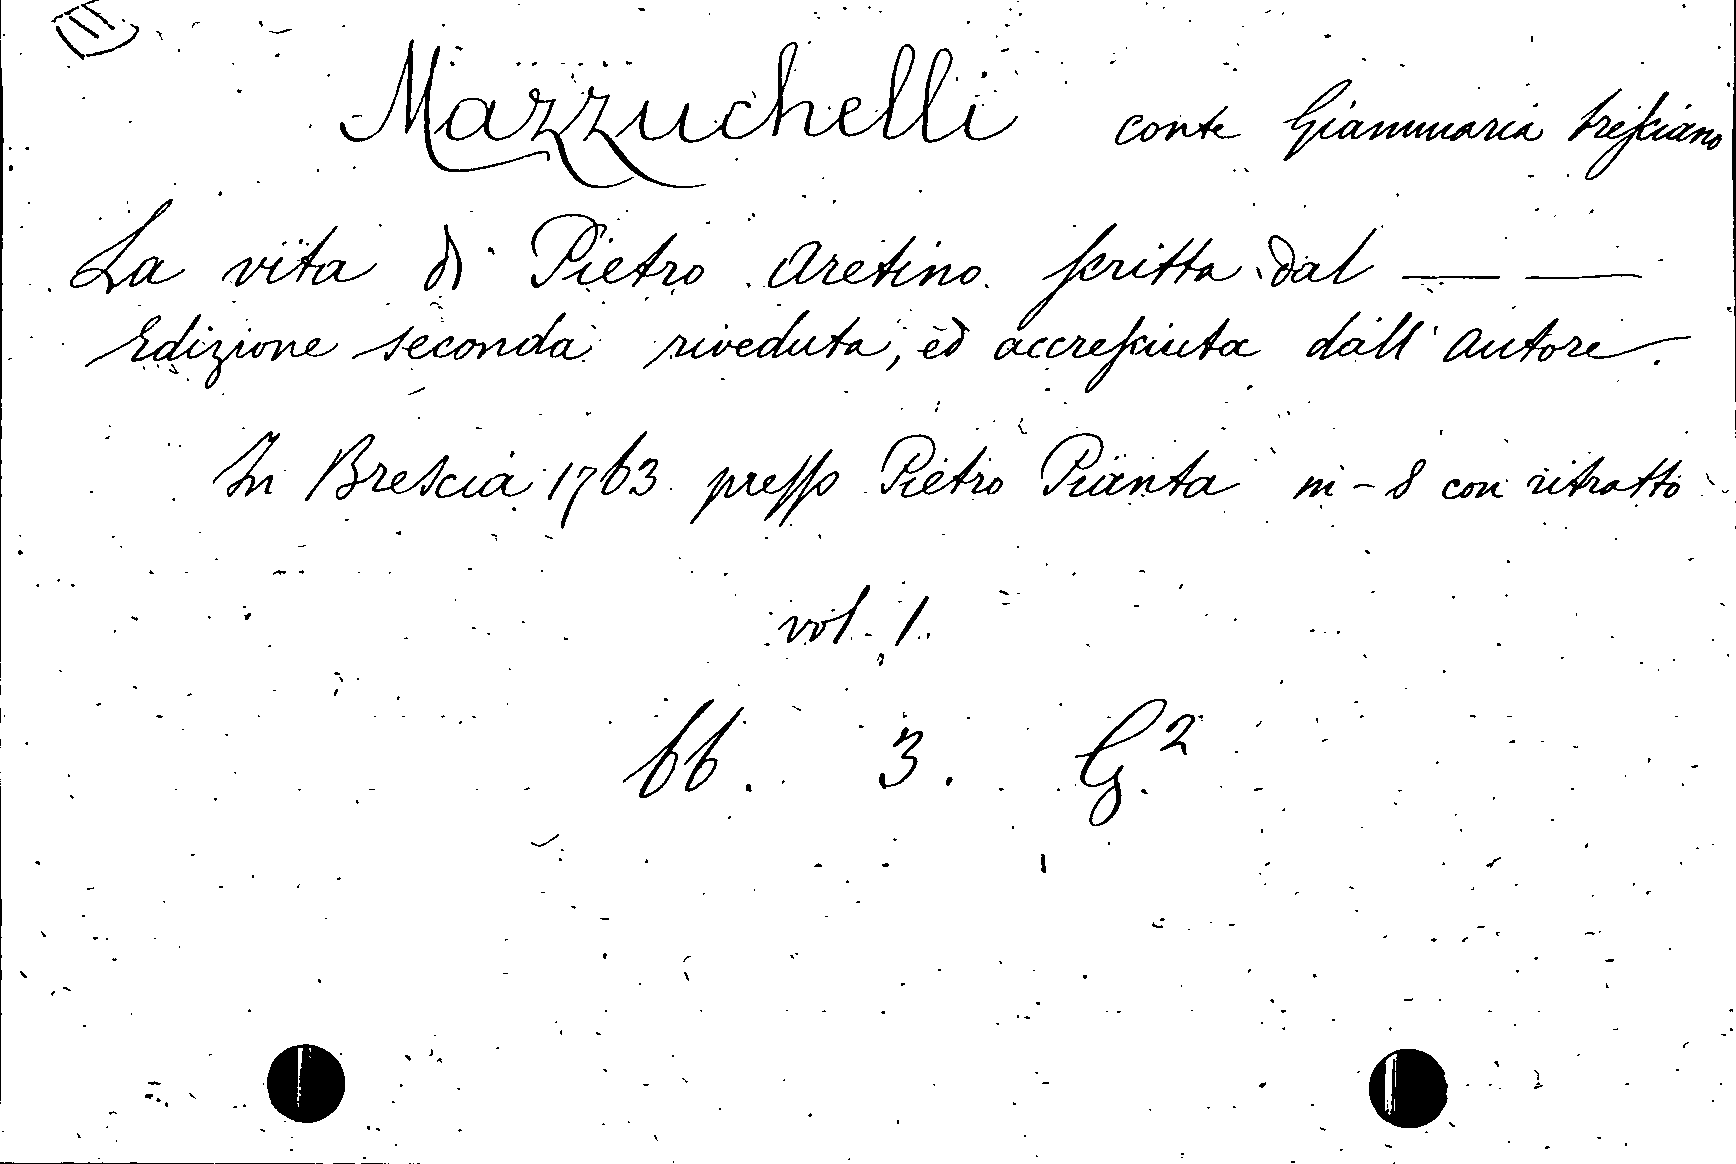 Mazzuchelli conte Giammaria bresciano
La vita di Pietro Aretino scritta dal — —
Edizione seconda riveduta, ed accresciuta dall' autore.
In Brescia 1763 presso Pietro Pianta in-8 con ritratto
vol. 1.
66. 3. G.2